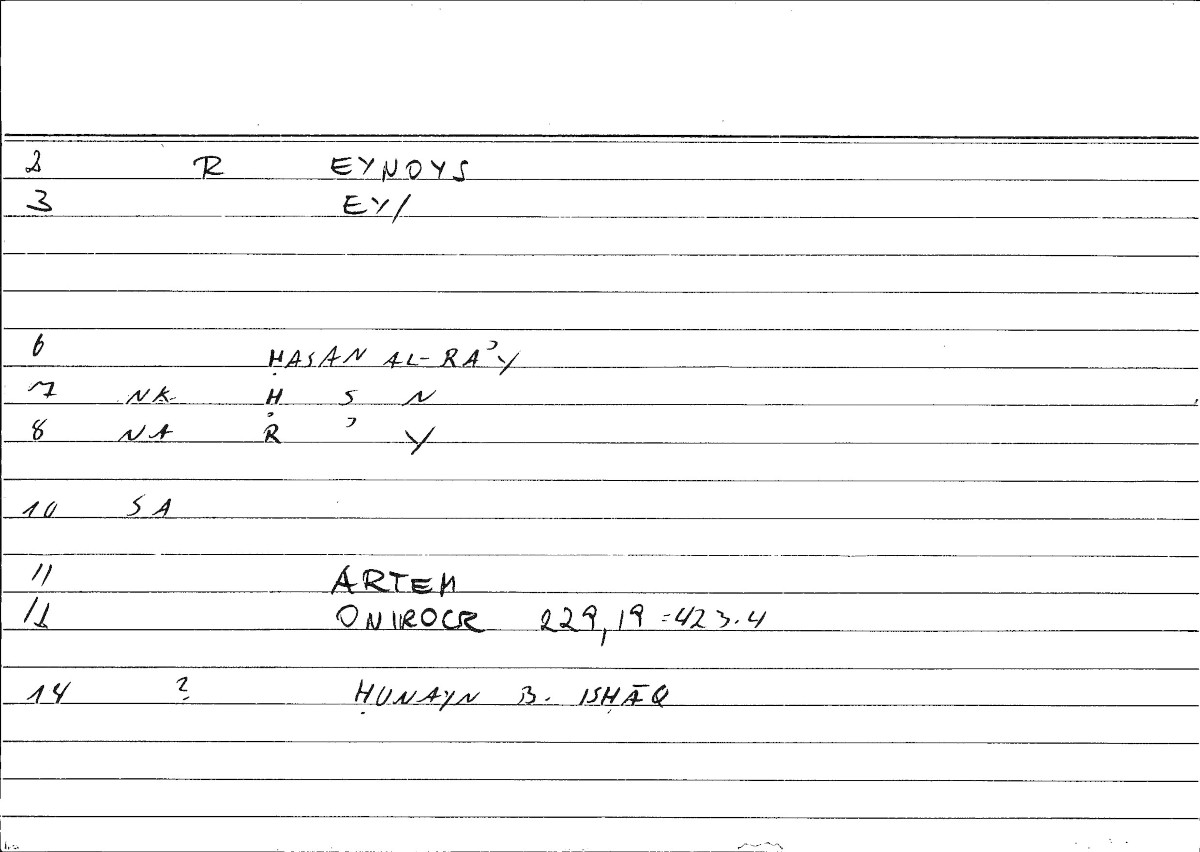 2 R EYNOYS
3 EY/
6 ḤASAN AL-RAʾY
7 NK. Ḥ S N
8 NA R ʾ Y
10 SA
11 ARTEM
12 ONIROCR 229,19=423.4
14 ? ḤUNAYN B. ISḤĀQ